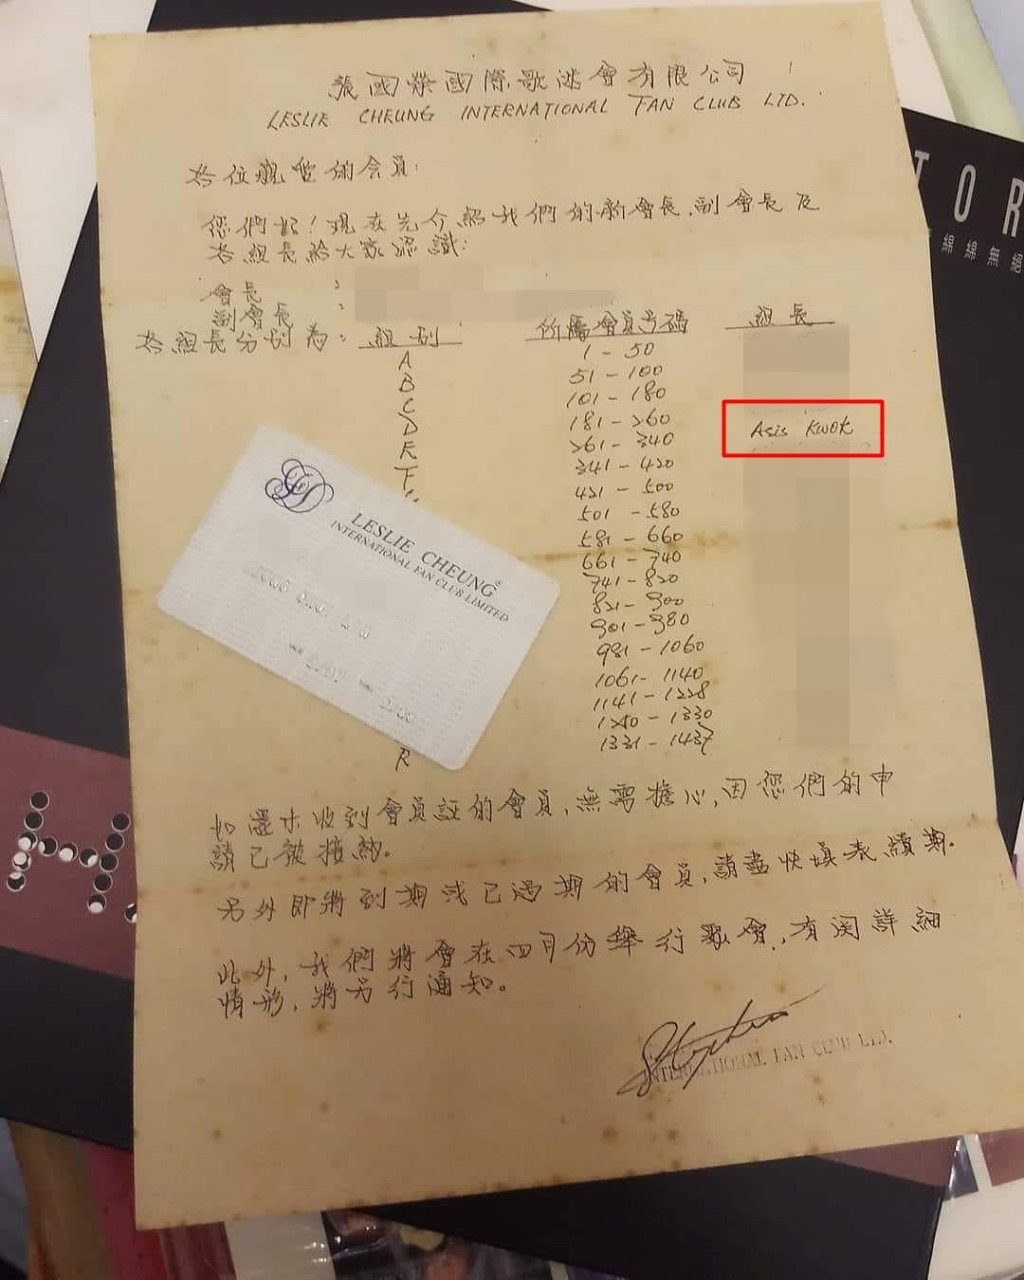 張國榮國際歌迷會有限公司
LESLIE CHEUNG INTERNATIONAL FAN CLUB LTD.
各位親愛的会員:
您們好!現在先介紹我們的新會長,副會長及
各組長給大家認識:
會長 :
副會長 :
各組長分别為: 組别 所屬會員号碼 組長
A 1 - 50
B 51 - 100
C 101 - 180
D 181 - 260 Asis Kwok
E 261 - 340
F 341 - 420
421 - 500
501 - 580
581 - 660
661 - 740
741 - 820
821 - 900
901 - 980
981 - 1060
1061 - 1140
1141 - 1228
1331 - 1437
R
LESLIE CHEUNG
INTERNATIONAL FAN CLUB LIMITED
如還未收到會員証的會員,無需擔心,因您們的申
請已被接納。
另外即將到期或已過期的會員,請盡快填表續期.
此外,我們將會在四月份舉行聚會,有関詳細
情形,將另行通知。
INTERNATIONAL FAN CLUB LTD.
TOR
綿綿無絕
H